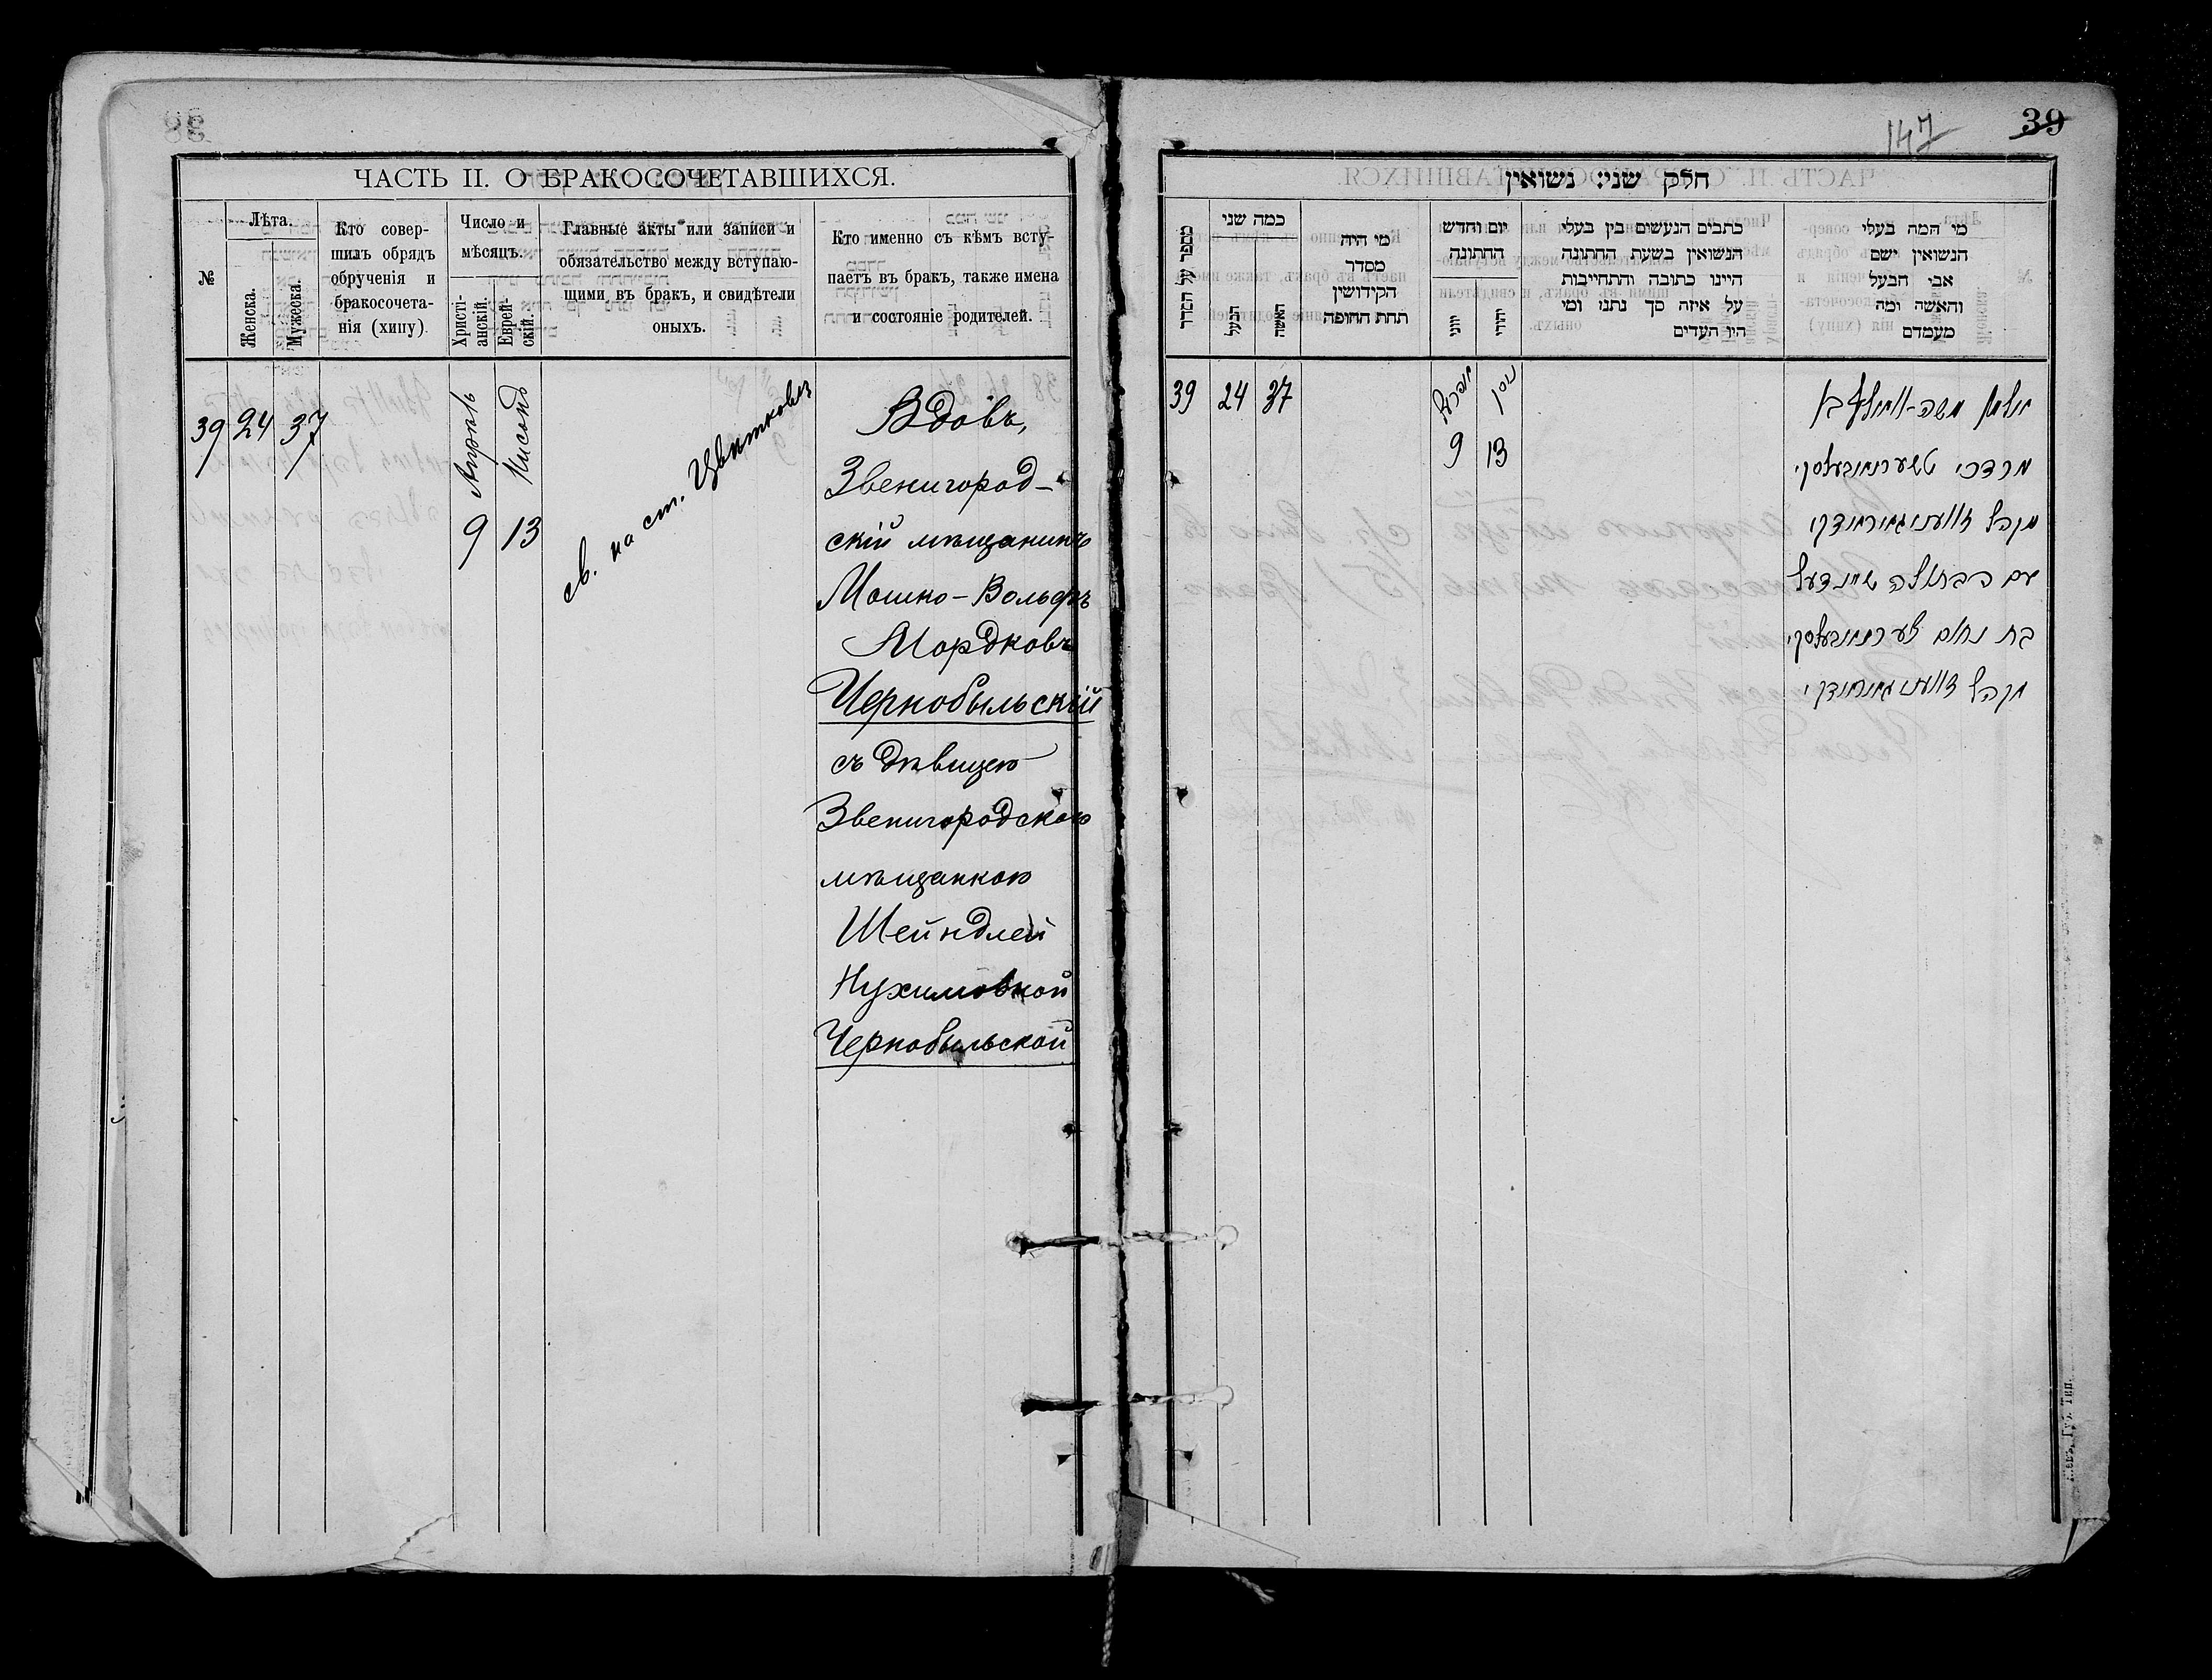 ЧАСТЬ II. О БРАКОСОЧЕТАВШИХСЯ.
№
Лѣта.
Женска.
Мужеска.
Кто совер-
шилъ обрядъ
обрученія и
бракосочета-
нія (хипу).
Число и
мѣсяцъ.
Христі-
анскій.
Еврей-
скій.
Главные акты или записи и
обязательство между вступаю-
щими въ бракъ, и свидѣтели
оныхъ.
Кто именно съ кѣмъ всту-
паетъ въ бракъ, также имена
и состояніе родителей.
39 24 37
Апрѣль
9
Нисонъ
13
св. на ст. Цвѣтково
Вдовъ,
Звенигород-
скій мѣщанинъ
Мошко-Вольфъ
Мордковъ
Чернобыльскій
съ дѣвицею
Звенигородскою
мѣщанкою
Шейндлей
Нухимовной
Чернобыльской
147
39
חלק שני: נשואין
מספר על הסדר
כמה שני
הבעל
האשה
מי היה
מסדר
הקידושין
תחת החופה
יום וחדש
החתונה
יוני
יהודי
כתבים הנעשים בין בעלי
הנשואין בשעת החתונה
היינו כתובה והתחייבות
על איזה סך נתנו ומי
היו העדים
מי המה בעלי
הנשואין ושם
אבי הבעל
והאשה ומה
מעמדם
39 24 37
אפרעל
9
ניסן
13
אלמן משה-וואלף בן
מרדכי טשערנאבעלסקי
מקהל זוועניגאראדקי
עם הבתולה שיינדעל
בת נחום
מקהל זוועניגאראדקי
Кіевъ, Губ. Тип.